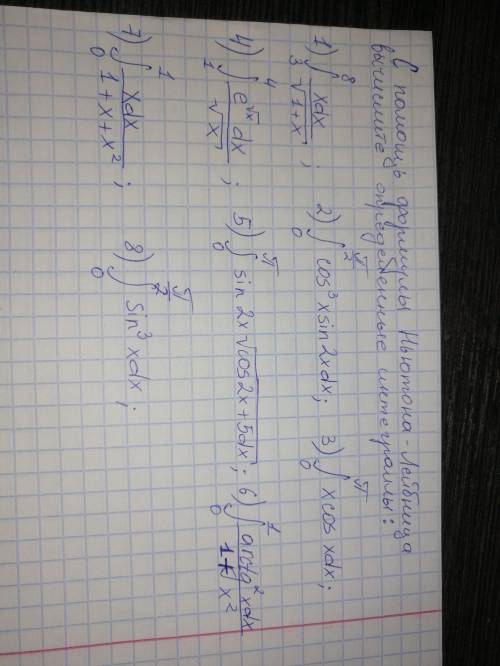 С помощь формулы Ньютона-Лейбница
вычислите определенные интегралы:
1) ∫₃⁸ xdx/√(1+x) ; 2) ∫₀^(π/2) cos³x sin2xdx; 3) ∫₀^π x cos xdx;
4) ∫₁⁴ e^√x dx/√x ; 5) ∫₀^π sin2x√(cos2x+5dx); 6) ∫₀¹ arctg²xdx/(1+x²)
7) ∫₀¹ xdx/(1+x+x²) ; 8) ∫₀^(π/2) sin³xdx;